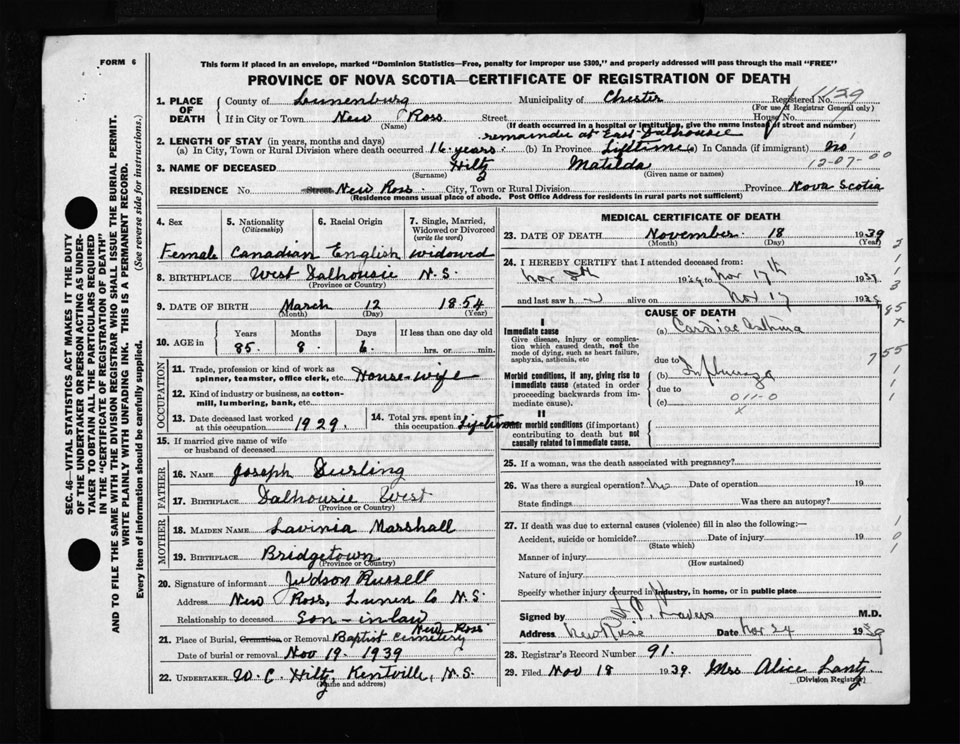 FORM 6
This form if placed in an envelope, marked "Dominion Statistics—Free, penalty for improper use $300," and properly addressed will pass through the mail "FREE"
PROVINCE OF NOVA SCOTIA—CERTIFICATE OF REGISTRATION OF DEATH
SEC. 46—VITAL STATISTICS ACT MAKES IT THE DUTY
OF THE UNDERTAKER OR PERSON ACTING AS UNDER-
TAKER TO OBTAIN ALL THE PARTICULARS REQUIRED
IN THE "CERTIFICATE OF REGISTRATION OF DEATH"
AND TO FILE THE SAME WITH THE DIVISION REGISTRAR WHO SHALL ISSUE THE BURIAL PERMIT.
WRITE PLAINLY WITH UNFADING INK. THIS IS A PERMANENT RECORD.
Every item of information should be carefully supplied. (See reverse side for instructions.)
1. PLACE OF DEATH County of Lunenburg Municipality of Chester Registered No. 1139
(For use of Registrar General only)
If in City or Town New Ross Street House No.
(Name) (If death occurred in a hospital or institution, give the name instead of street and number)
remainder at East Dalhousie
2. LENGTH OF STAY (in years, months and days)
(a) In City, Town or Rural Division where death occurred 16 years. (b) In Province Lifetime (c) In Canada (if immigrant) no
12-07-00
3. NAME OF DECEASED Hiltz Matilda
(Surname) (Given name or names)
RESIDENCE No. Street New Ross. City, Town or Rural Division Province Nova Scotia
(Residence means usual place of abode. Post Office Address for residents in rural parts not sufficient)
4. Sex Female
5. Nationality (Citizenship) Canadian
6. Racial Origin English
7. Single, Married, Widowed or Divorced (write the word) widowed
8. BIRTHPLACE West Dalhousie N.S.
(Province or Country)
9. DATE OF BIRTH March 12 1854
(Month) (Day) (Year)
10. AGE in Years 85. Months 8 Days 6. If less than one day old hrs. or min.
OCCUPATION
11. Trade, profession or kind of work as spinner, teamster, office clerk, etc. House-wife
12. Kind of industry or business, as cotton-mill, lumbering, bank, etc.
13. Date deceased last worked at this occupation 1929.
14. Total yrs. spent in this occupation Lifetime
15. If married give name of wife or husband of deceased
FATHER
16. NAME Joseph Durling
17. BIRTHPLACE Dalhousie West
(Province or Country)
MOTHER
18. MAIDEN NAME Lavinia Marshall
19. BIRTHPLACE Bridgetown
(Province or Country)
20. Signature of informant Judson Russell
Address New Ross, Lunen Co N.S.
Relationship to deceased Son-in-law
21. Place of Burial, Cremation or Removal Baptist Cemetery New Ross
Date of burial or removal Nov 19. 1939
22. UNDERTAKER W. C. Hiltz, Kentville, N.S.
(Name and address)
MEDICAL CERTIFICATE OF DEATH
23. DATE OF DEATH November 18 1939
(Month) (Day) (Year)
24. I HEREBY CERTIFY that I attended deceased from:
Nov 1939 to Nov 17th 1939
and last saw h alive on Nov 17 1939
CAUSE OF DEATH
I
Immediate cause
Give disease, injury or complication which caused death, not the mode of dying, such as heart failure, asphyxia, asthenia, etc
(a) Cardiac Asthma
due to
Morbid conditions, if any, giving rise to immediate cause (stated in order proceeding backwards from immediate cause).
(b) Influenza
due to
(c) 011-0
x
II
Other morbid conditions (if important) contributing to death but not causally related to immediate cause.
25. If a woman, was the death associated with pregnancy?
26. Was there a surgical operation? No Date of operation 19
State findings Was there an autopsy?
27. If death was due to external causes (violence) fill in also the following:—
Accident, suicide or homicide? Date of injury 19
(State which)
Manner of injury
(How sustained)
Nature of injury
Specify whether injury occurred in industry, in home, or in public place
Signed by M.D.
Address New Ross Date Nov 24 1939
28. Registrar's Record Number 91.
29. Filed Nov 18 1939. Mrs Alice Lantz
(Division Registrar)